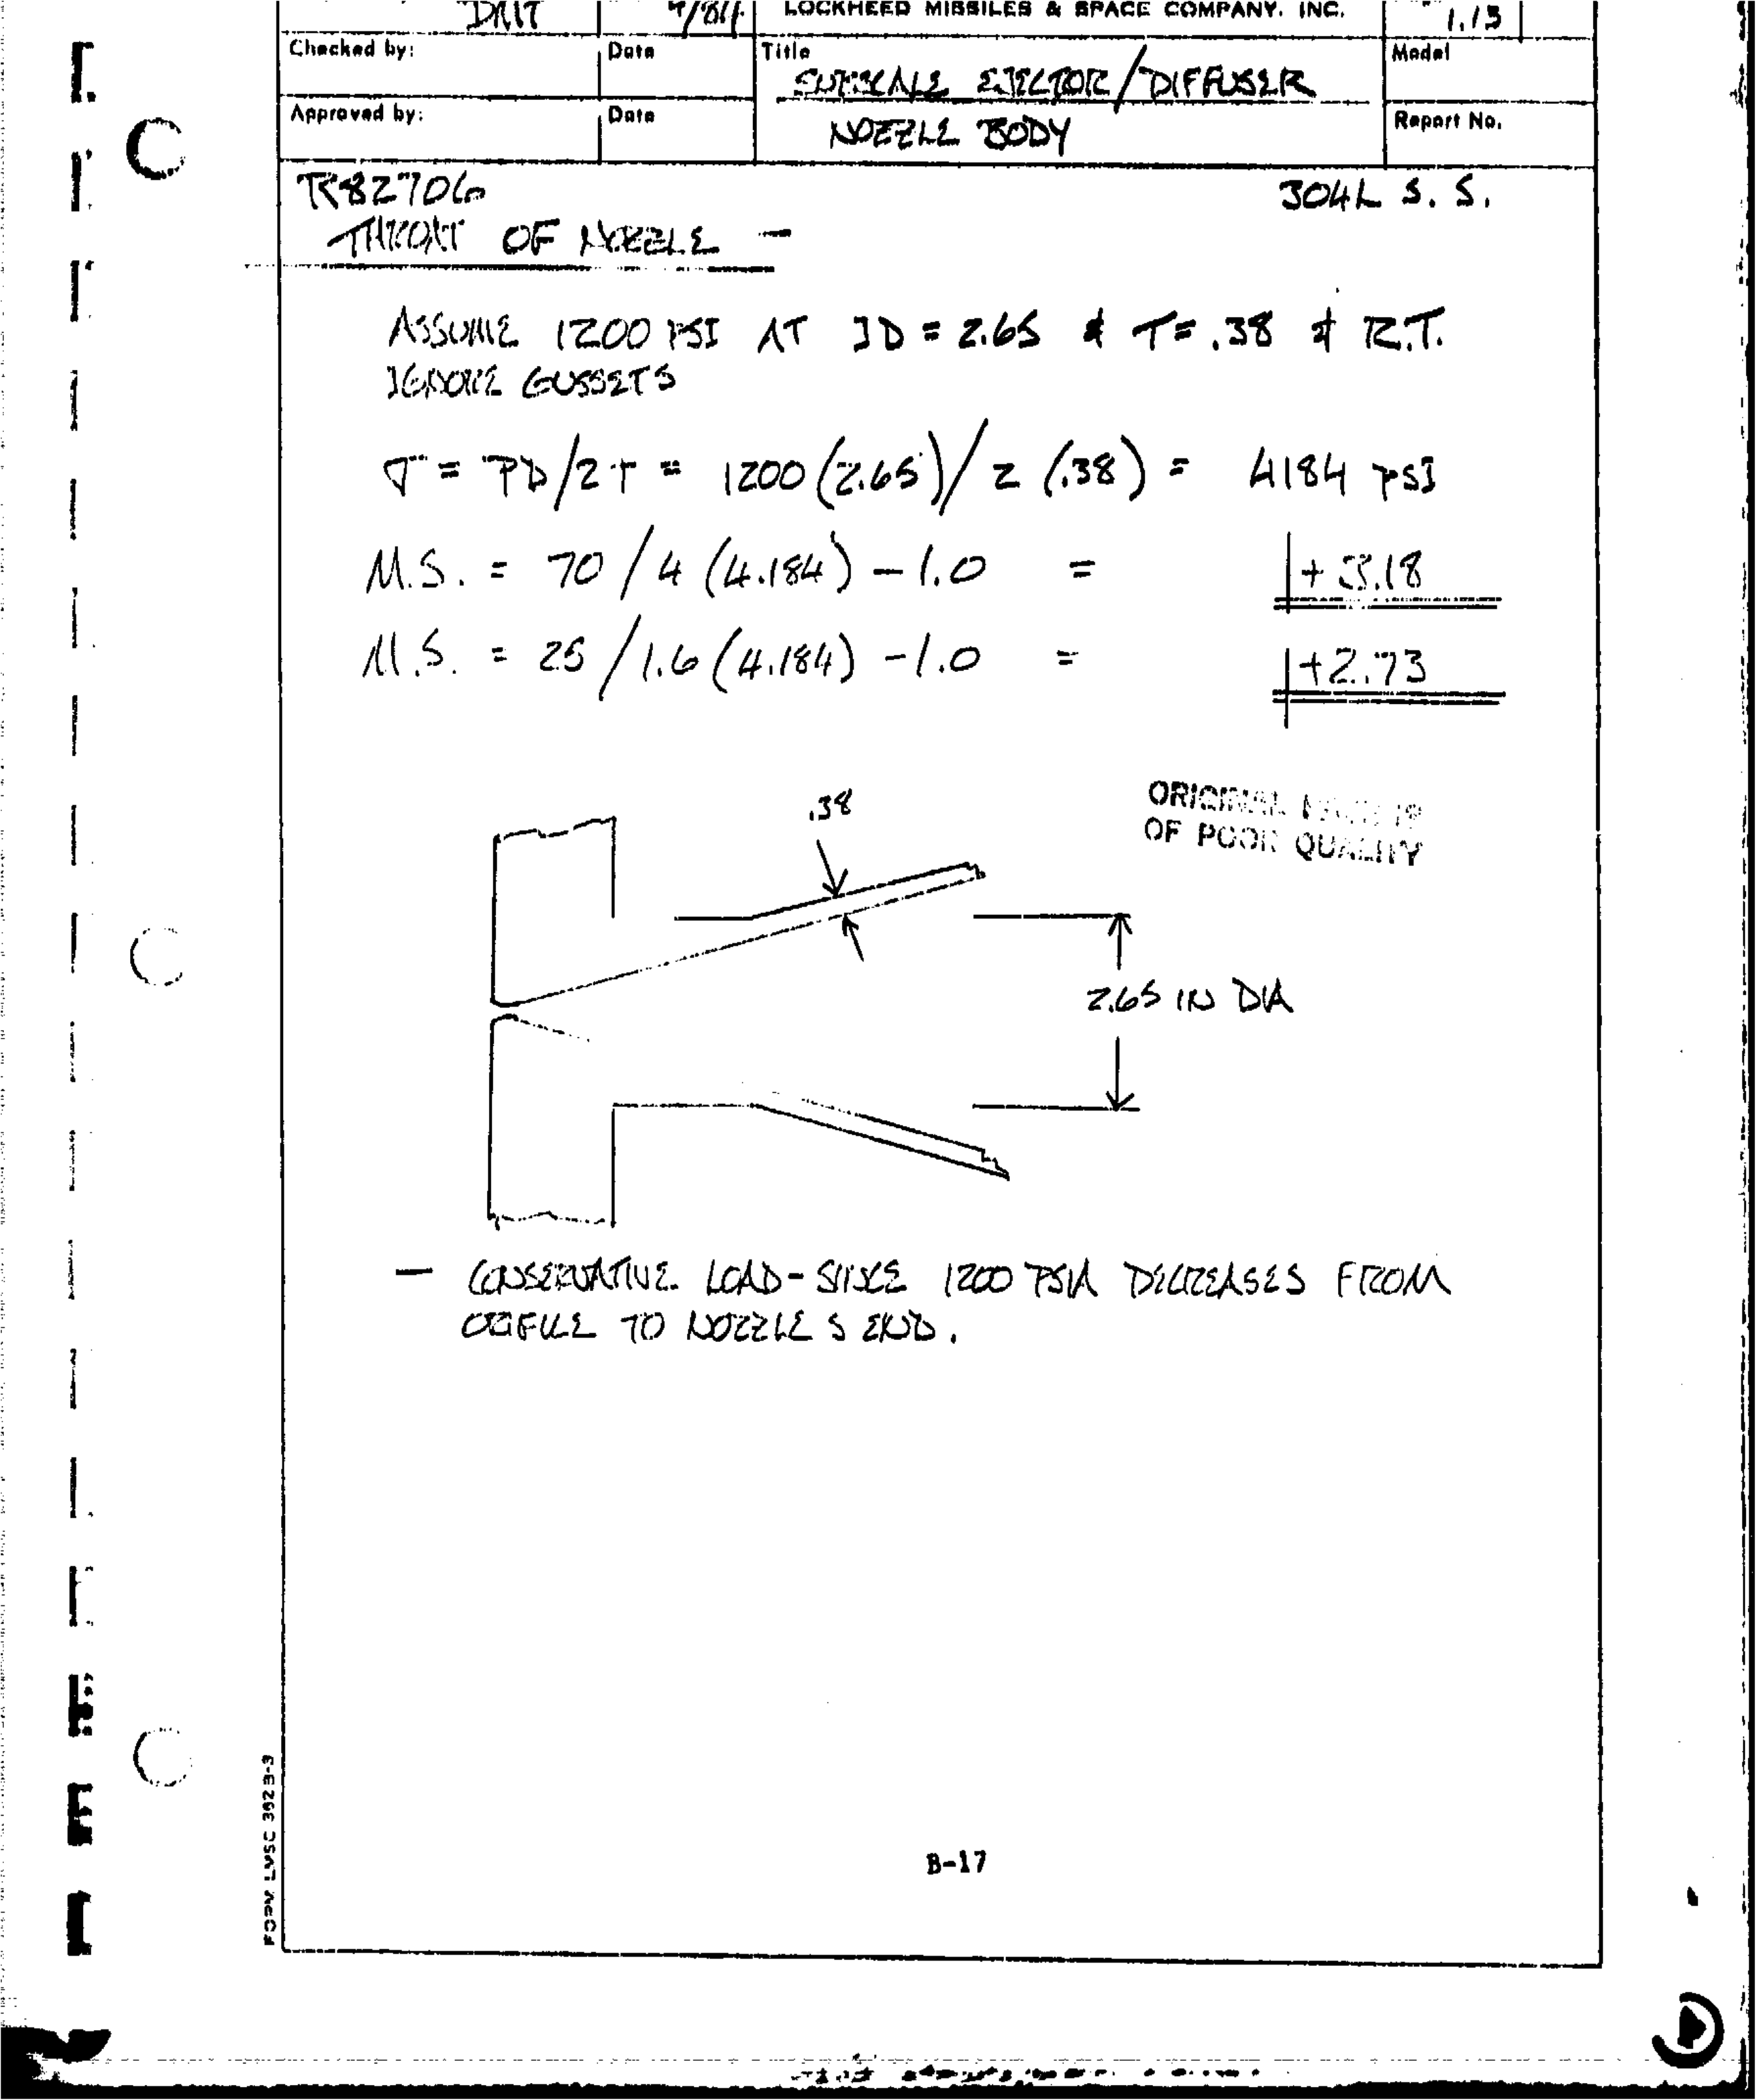 LOCKHEED MISSILES & SPACE COMPANY, INC.
1.13
Checked by:
Date
Title
SUBSCALE EJECTOR/DIFFUSER
Model
Approved by:
Date
NOZZLE BODY
Report No.
R82706
304L S. S.
THROAT OF NOZZLE —
ASSUME 1200 PSI AT ID = 2.65 & T = .38 & R.T.
IGNORE GUSSETS
σ = PD/2T = 1200 (2.65)/2 (.38) = 4184 PSI
M.S. = 70/4 (4.184) - 1.0 = +3.18
M.S. = 25/1.6 (4.184) - 1.0 = +2.73
.38
ORIGINAL
OF POOR QUALITY
2.65 IN DIA
— CONSERVATIVE LOAD - SINCE 1200 PSIA DECREASES FROM
TO NOZZLE'S END.
FORM LMSC 3623-3
B-17